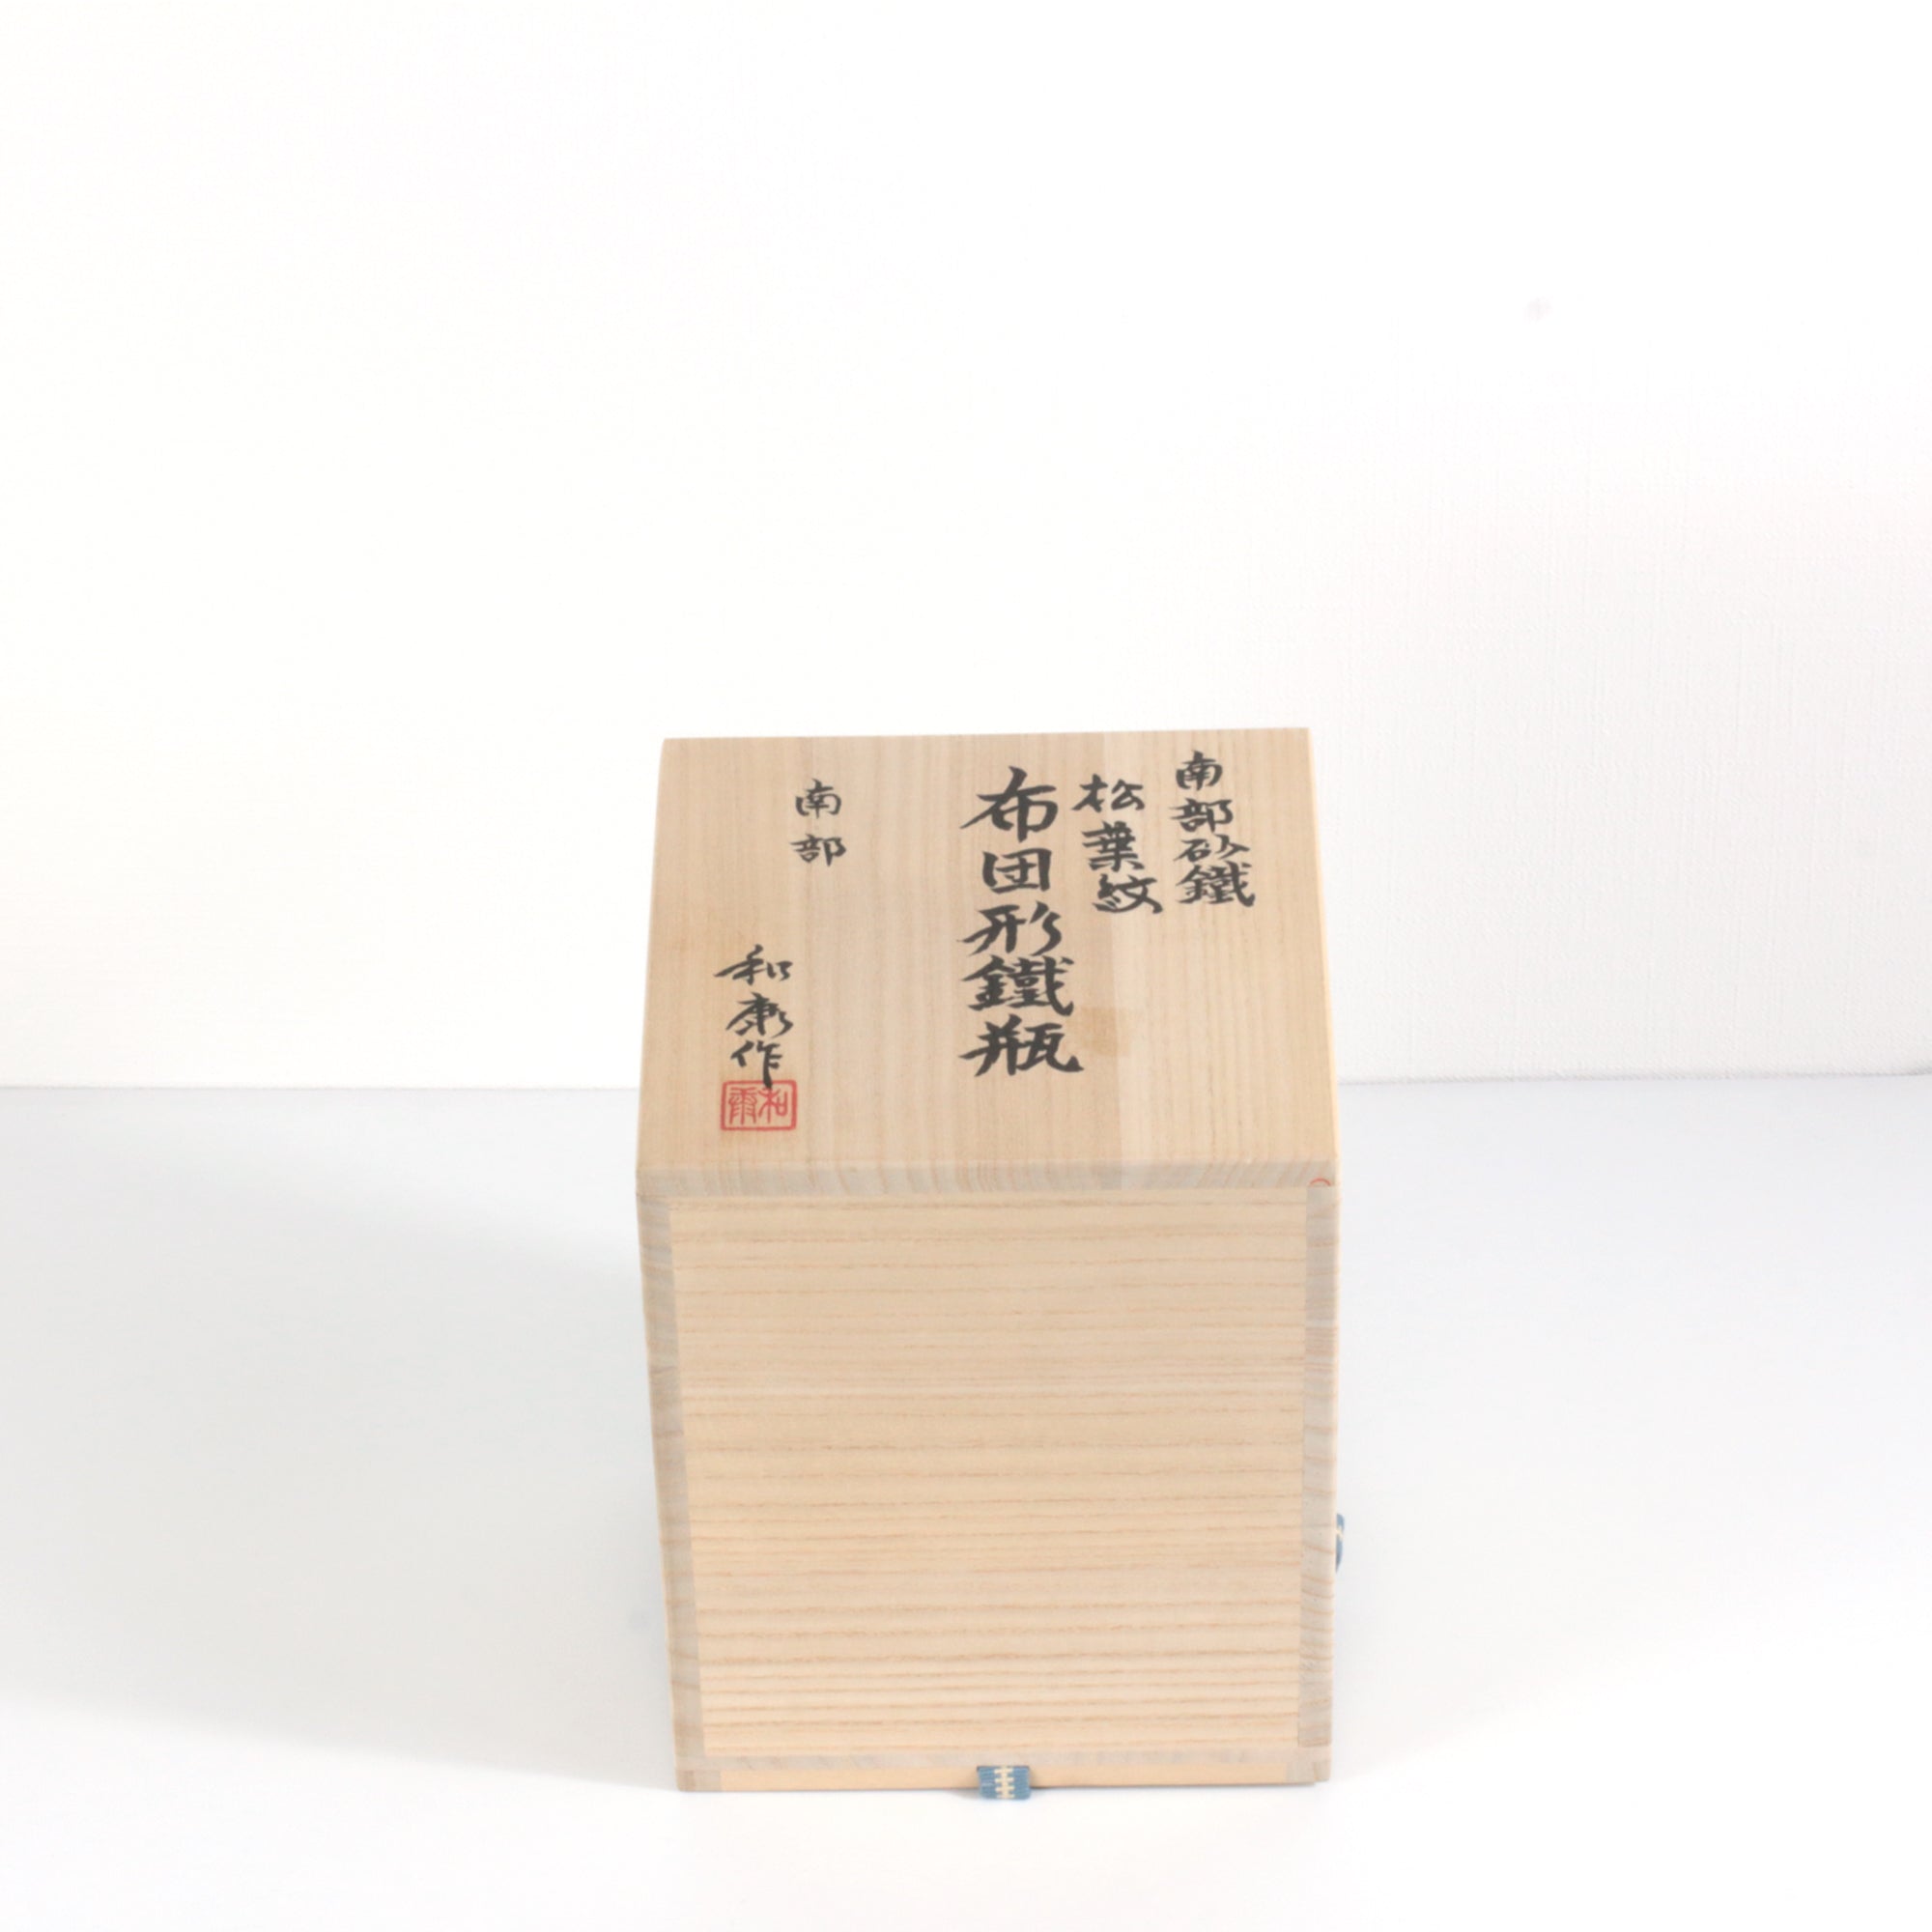 南部砂鐵
松葉紋
布団形鐵瓶
南部
和康作
和康